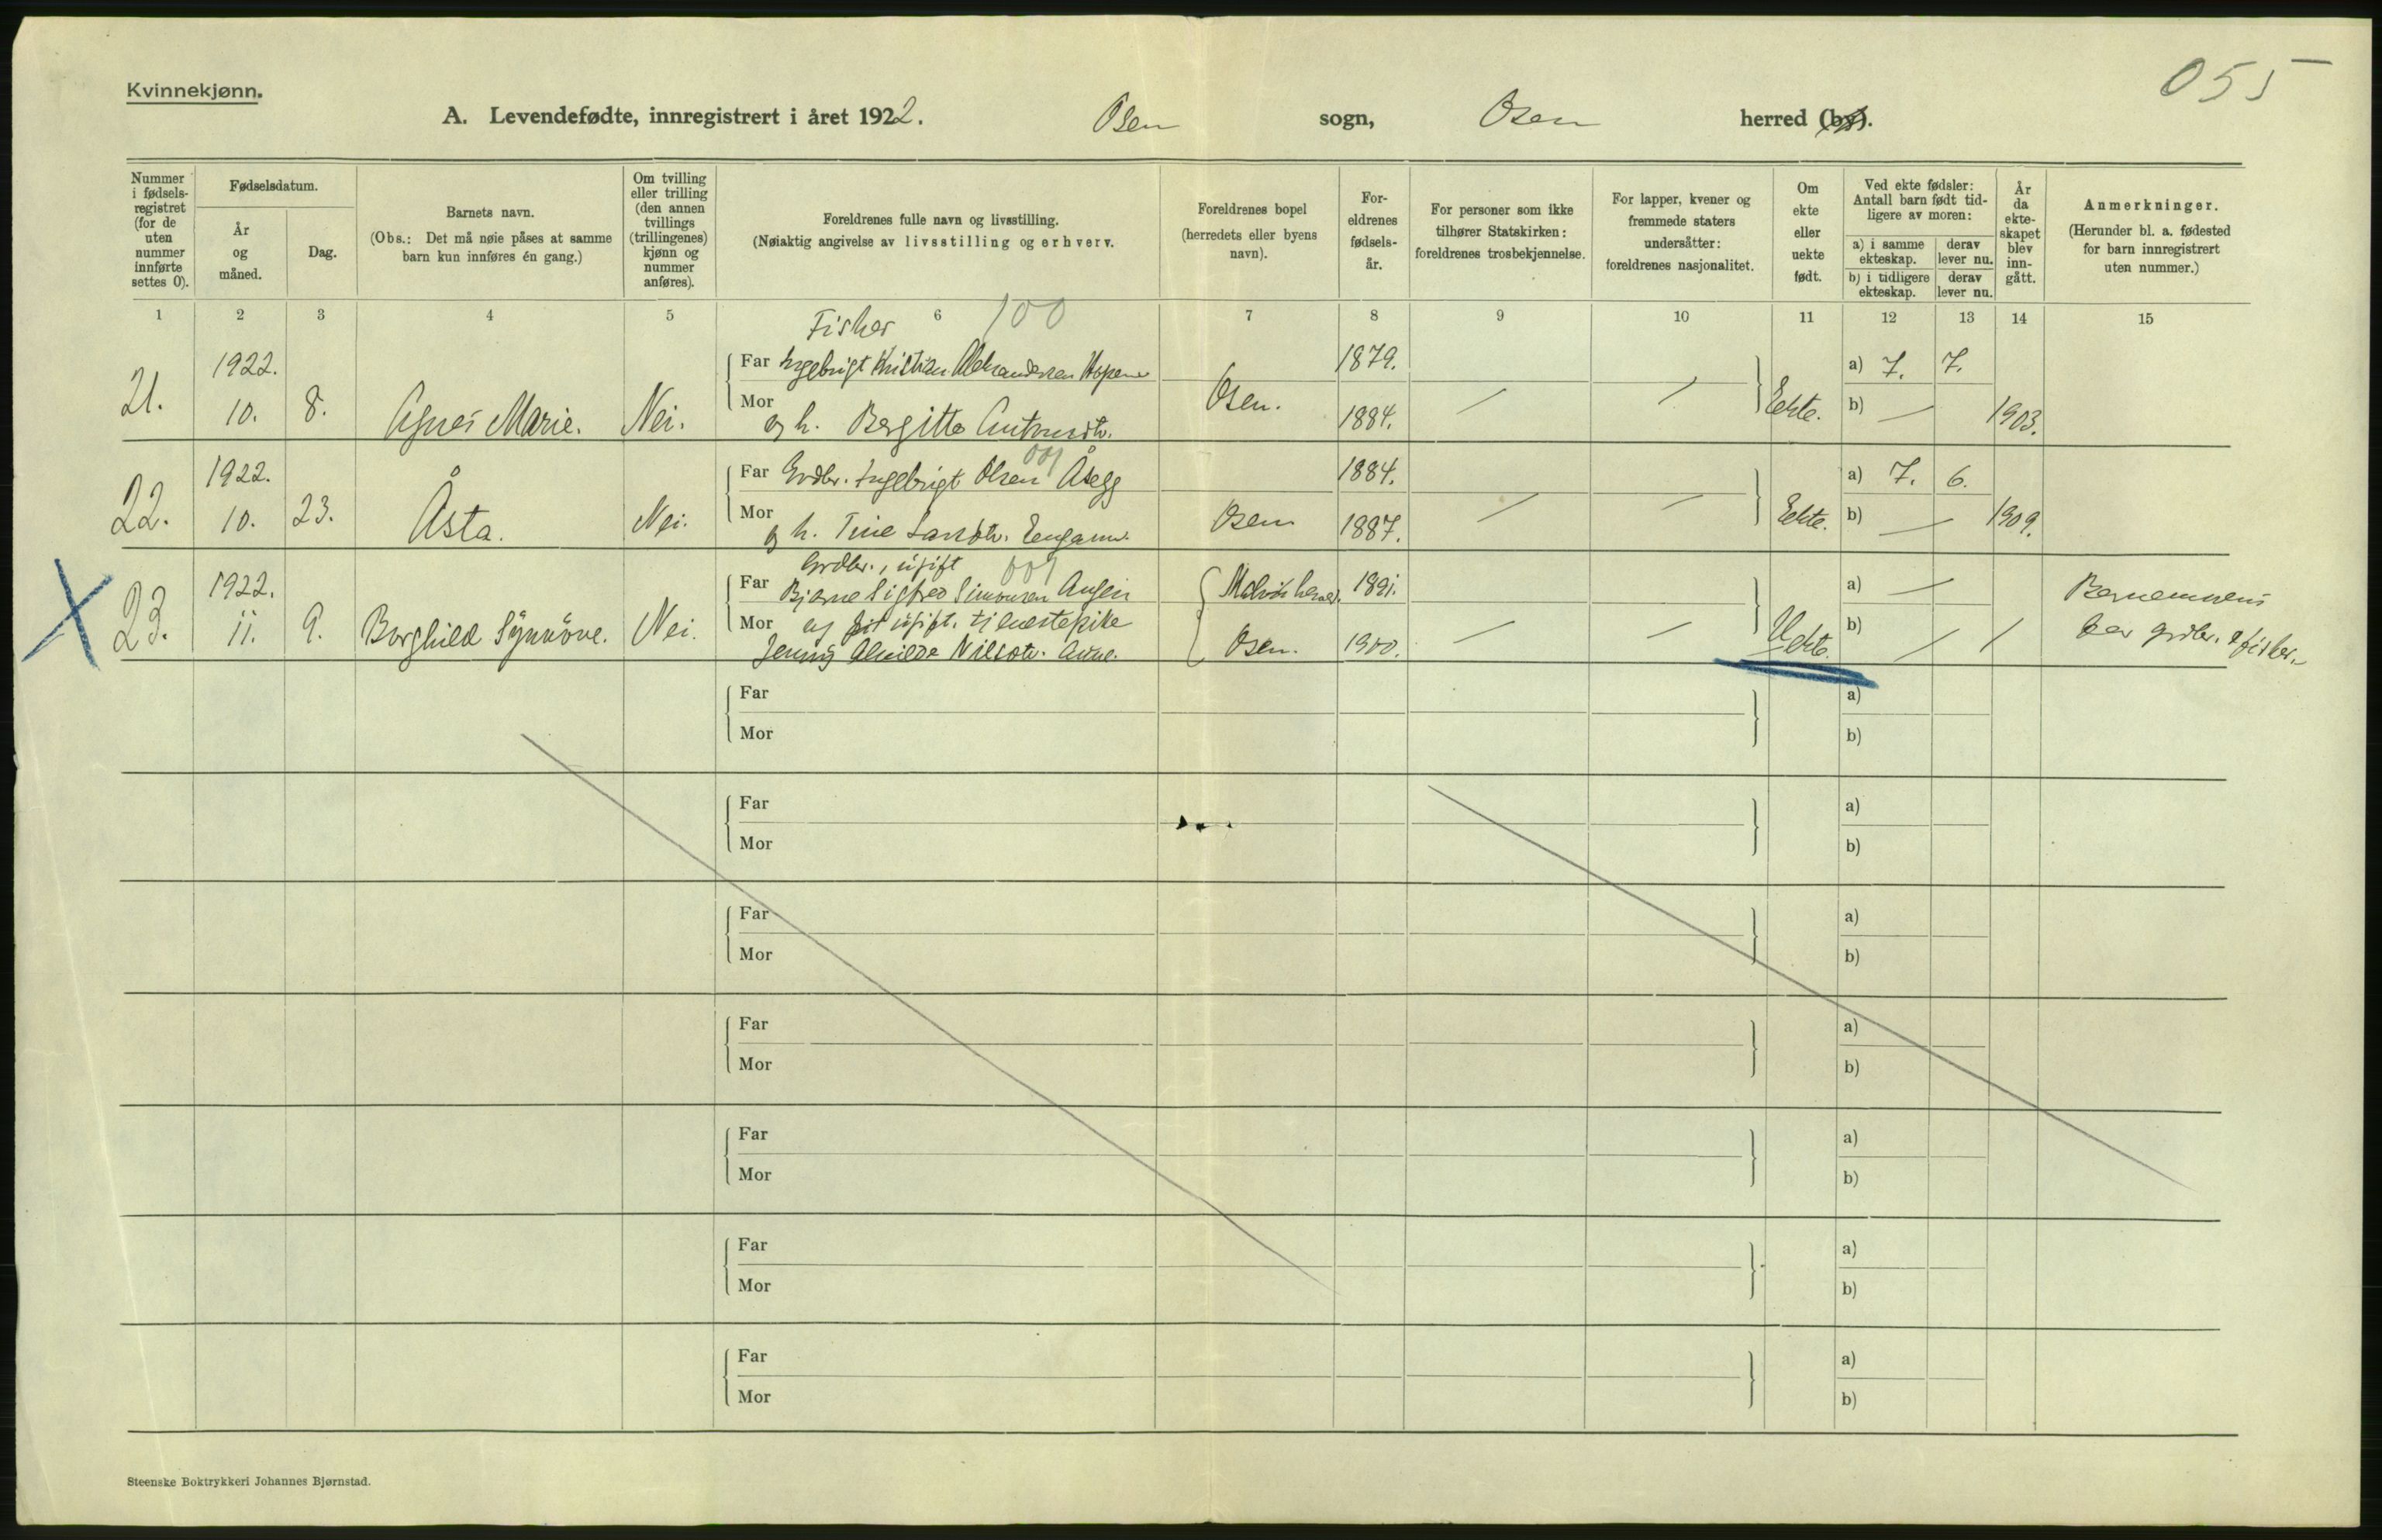 055
Kvinnekjønn.
A. Levendefødte, innregistrert i året 1922. Osen sogn, Osen herred (by).
Nummer i fødselsregistret (for de uten nummer innførte settes 0).
Fødselsdatum.
År og måned.
Dag.
Barnets navn.
(Obs.: Det må nøie påses at samme barn kun innføres én gang.)
Om tvilling eller trilling (den annen tvillings (trillingenes) kjønn og nummer anføres).
Foreldrenes fulle navn og livsstilling.
(Nøiaktig angivelse av livsstilling og erhverv.
Foreldrenes bopel (herredets eller byens navn).
Foreldrenes fødselsår.
For personer som ikke tilhører Statskirken: foreldrenes trosbekjennelse.
For lapper, kvener og fremmede staters undersåtter: foreldrenes nasjonalitet.
Om ekte eller uekte født.
Ved ekte fødsler: Antall barn født tidligere av moren:
a) i samme ekteskap.
derav lever nu.
b) i tidligere ekteskap.
derav lever nu.
År da ekteskapet blev inngått.
Anmerkninger.
(Herunder bl. a. fødested for barn innregistrert uten nummer.)
1 2 3 4 5 6 7 8 9 10 11 12 13 14 15
Fisker 100
21. 1922. 10. 8. Agnes Marie. Nei.
Far Ingebrigt Kristian Aleksandersen Hopen 1879. a) 7. 7.
Mor og h. Bergitte Osen. 1884. Ekte. b) — 1903.
22. 1922. 10. 23. Åsta. Nei.
001
Far Grdbr. Ingebrigt Olsen Åsegg 1884. a) 7. 6.
Mor og h. Tine Osen 1887. Ekte. b) — 1909.
X 23. 1922. 11. 9. Borghild Synnöve. Nei.
Grdbr., ugift 001
Far Bjarne Sigfred Simonsen Angen Malvik herred. 1891. a) —
Mor og ugift. tjenestepike b)
Jenny Alvilde Nilsdtr. Osen. 1900. Uekte.
Barnemorens
far grdbr. & fisker.
Far a)
Mor b)
Far a)
Mor b)
Far a)
Mor b)
Far a)
Mor b)
Far a)
Mor b)
Far a)
Mor b)
Far a)
Mor b)
Steenske Boktrykkeri Johannes Bjørnstad.